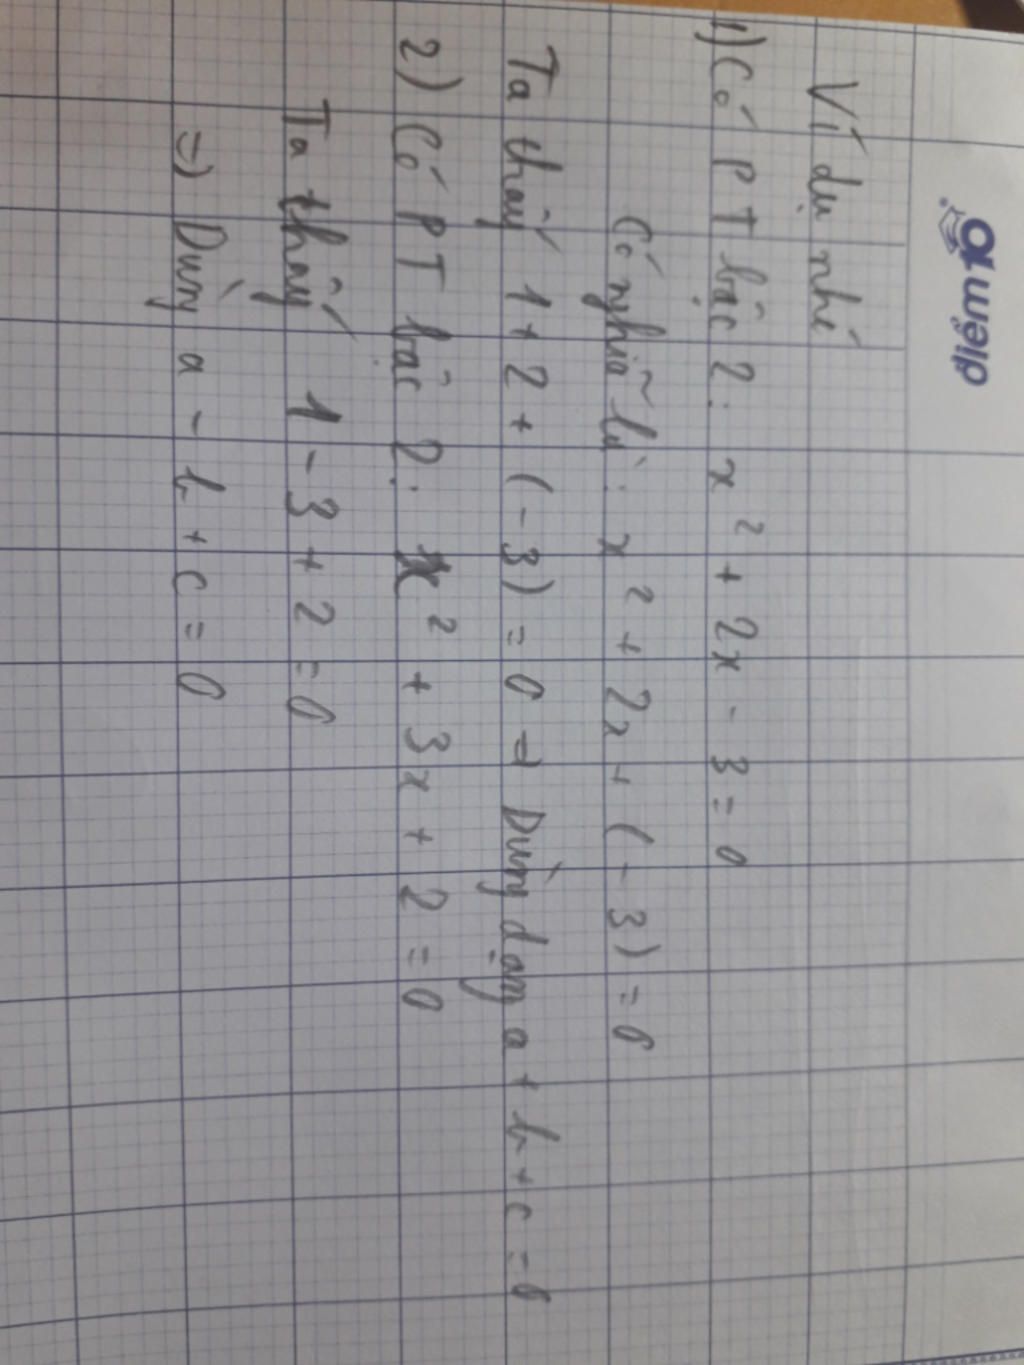 điểm10
Ví dụ nhé
1) Có PT bậc 2: x² + 2x - 3 = 0
Có nghĩa là: x² + 2x + (-3) = 0
Ta thấy 1 + 2 + (-3) = 0 => Dùng dạng a + b + c = 0
2) Có PT bậc 2: x² + 3x + 2 = 0
Ta thấy 1 - 3 + 2 = 0
=) Dùng a - b + c = 0